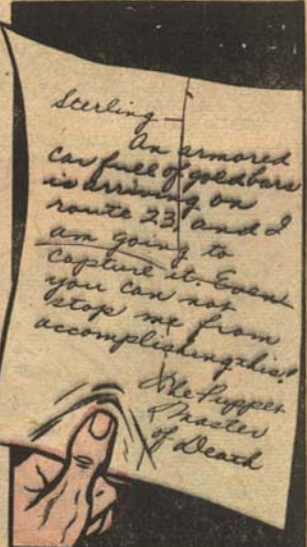 Sterling—
An armored
car full of gold bars
is arriving on
route 23, and I
am going to
capture it. Even
you can not
stop me from
accomplishing this!
The Puppet
Master
of Death